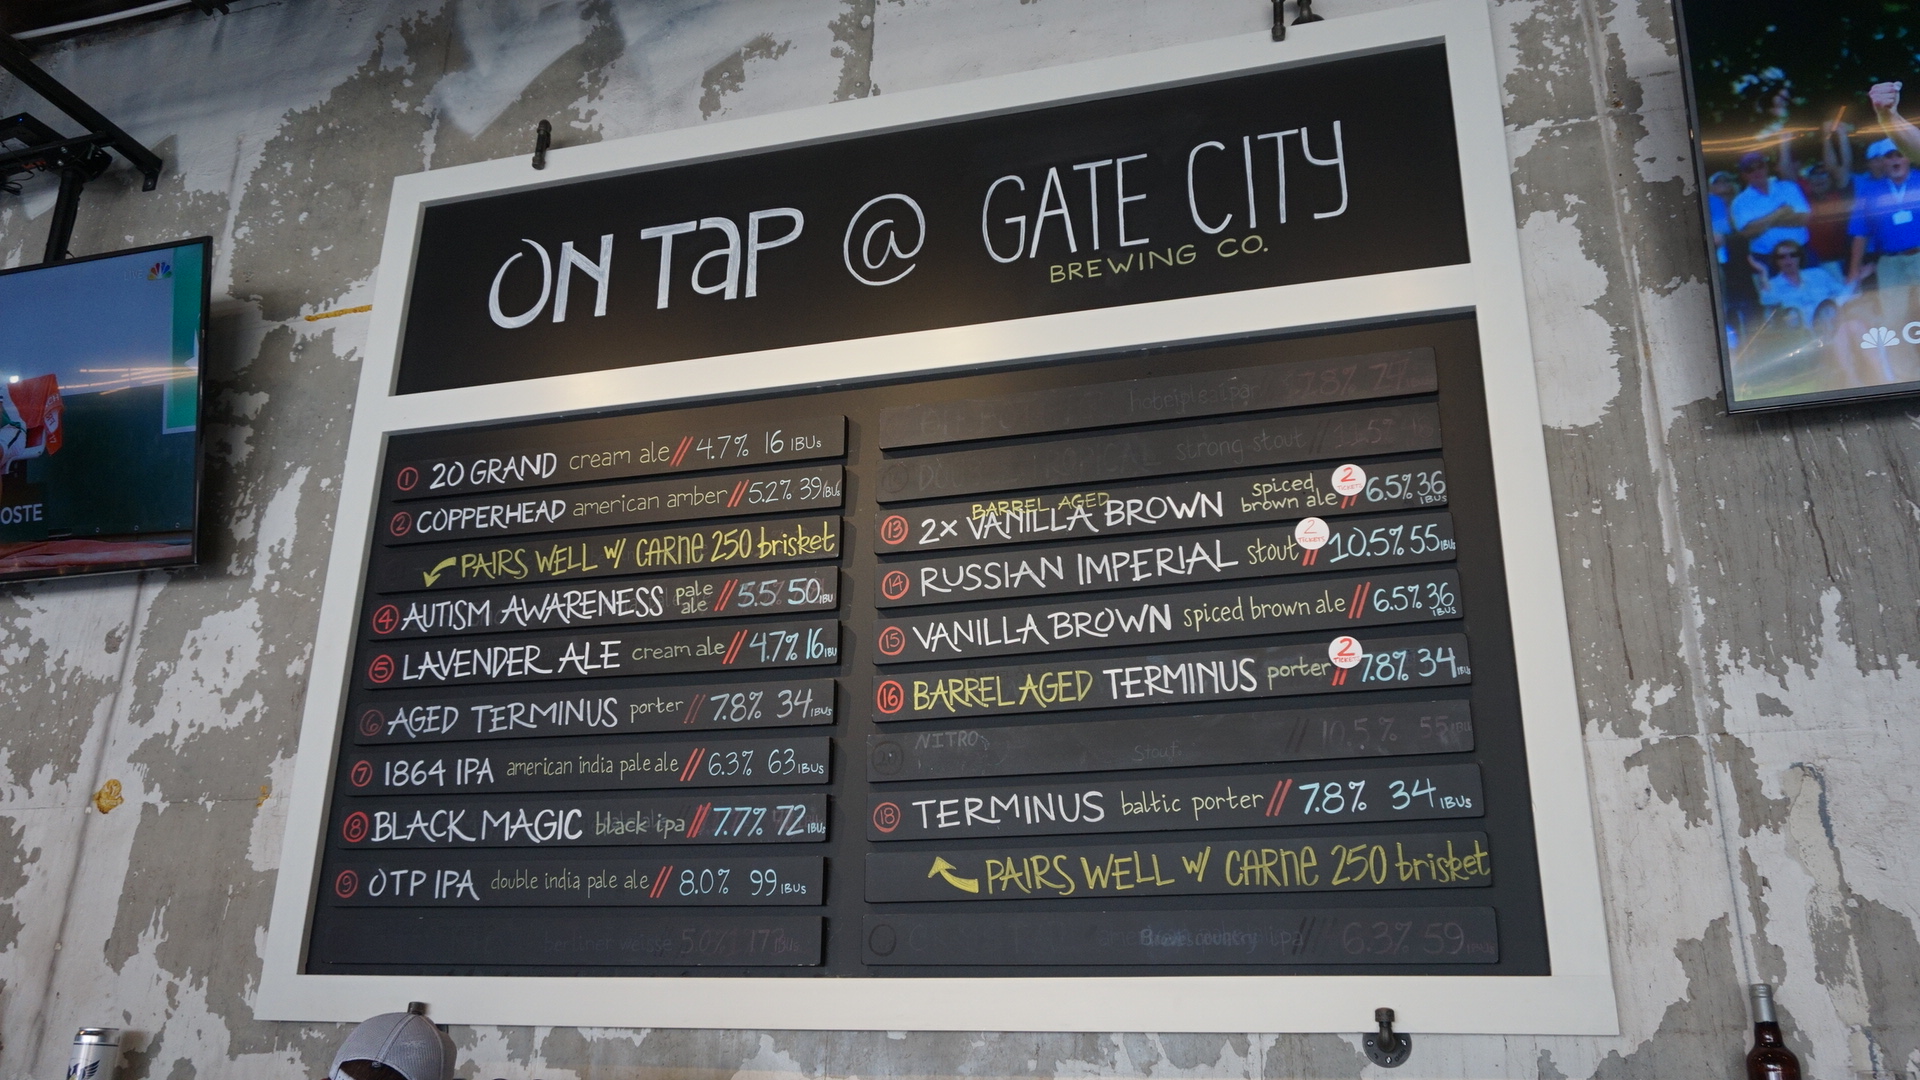 ON TAP @ GATE CITY
BREWING CO.
1 20 GRAND cream ale // 4.7% 16 IBUs
2 COPPERHEAD american amber // 5.2% 39 IBUs
PAIRS WELL w/ CARNE 250 brisket
4 AUTISM AWARENESS pale ale // 5.5% 50 IBU
5 LAVENDER ALE cream ale // 4.7% 16 IBU
6 AGED TERMINUS porter // 7.8% 34 IBUs
7 1864 IPA american india pale ale // 6.3% 63 IBUs
8 BLACK MAGIC black ipa // 7.7% 72 IBUs
9 OTP IPA double india pale ale // 8.0% 99 IBUs
berliner weisse 5.0% 17 IBUs
strong stout //
BARREL AGED
13 2x VANILLA BROWN spiced brown ale // 6.5% 36 IBUs
2 TICKETS
14 RUSSIAN IMPERIAL stout // 10.5% 55 IBUs
2 TICKETS
15 VANILLA BROWN spiced brown ale // 6.5% 36 IBUs
16 BARREL AGED TERMINUS porter // 7.8% 34 IBUs
2 TICKETS
NITRO stout // 10.5% 55 IBU
18 TERMINUS baltic porter // 7.8% 34 IBUs
PAIRS WELL w/ CARNE 250 brisket
ipa // 6.3% 59
OSTE
G